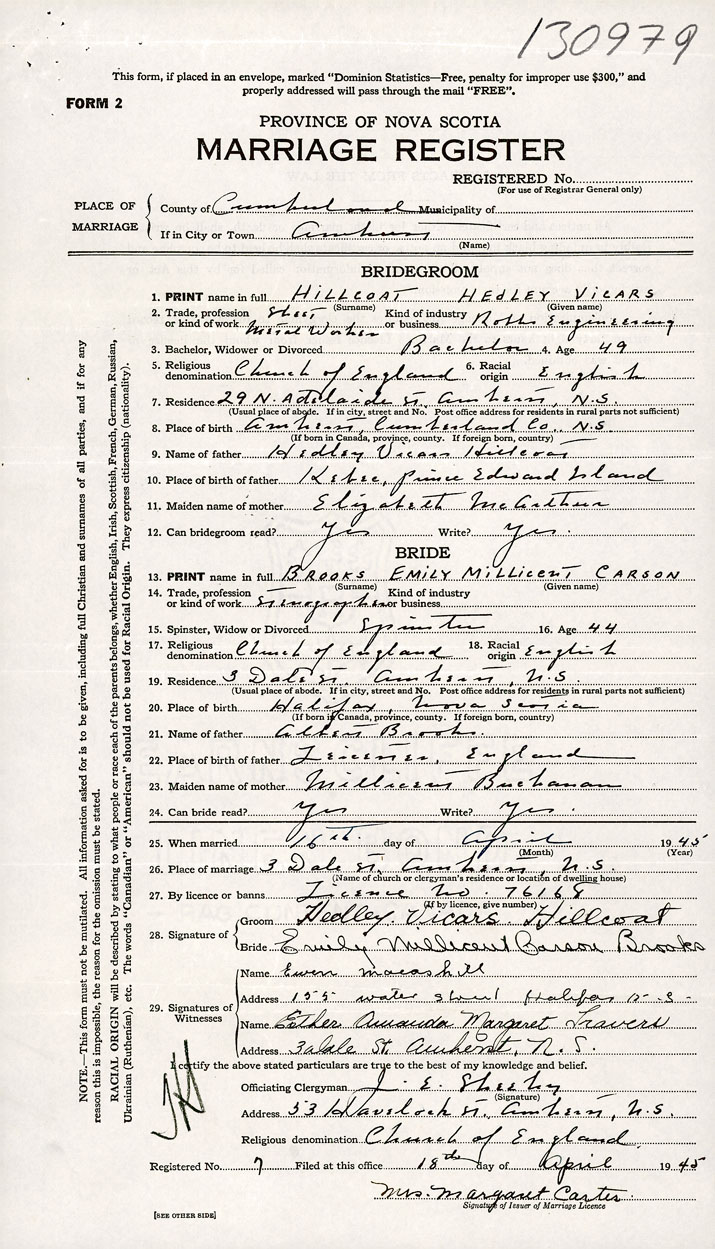 130979
This form, if placed in an envelope, marked "Dominion Statistics—Free, penalty for improper use $300," and
properly addressed will pass through the mail "FREE".
FORM 2
PROVINCE OF NOVA SCOTIA
MARRIAGE REGISTER
REGISTERED No.
(For use of Registrar General only)
PLACE OF MARRIAGE
County of Cumberland Municipality of
If in City or Town Amherst
(Name)
BRIDEGROOM
1. PRINT name in full HILLCOAT HEDLEY VICARS
(Surname) (Given name)
2. Trade, profession or kind of work Sheet Metal Worker Kind of industry or business Robb Engineering
3. Bachelor, Widower or Divorced Bachelor 4. Age 49
5. Religious denomination Church of England 6. Racial origin English
7. Residence 29 N. Adelaide St. Amherst, N.S.
(Usual place of abode. If in city, street and No. Post office address for residents in rural parts not sufficient)
8. Place of birth Amherst, Cumberland Co., N.S.
(If born in Canada, province, county. If foreign born, country)
9. Name of father Hedley Vicars Hillcoat
10. Place of birth of father Prince Edward Island
11. Maiden name of mother Elizabeth McArthur
12. Can bridegroom read? Yes Write? Yes.
BRIDE
13. PRINT name in full BROOKS EMILY MILLICENT CARSON
(Surname) (Given name)
14. Trade, profession or kind of work Stenographer Kind of industry or business
15. Spinster, Widow or Divorced Spinster 16. Age 44
17. Religious denomination Church of England 18. Racial origin English
19. Residence 3 Dale St. Amherst, N.S.
(Usual place of abode. If in city, street and No. Post office address for residents in rural parts not sufficient)
20. Place of birth Halifax, Nova Scotia
(If born in Canada, province, county. If foreign born, country)
21. Name of father Albert Brooks.
22. Place of birth of father Leicester, England
23. Maiden name of mother Millicent Buchanan
24. Can bride read? Yes Write? Yes.
25. When married 16th. day of April 1945
(Month) (Year)
26. Place of marriage 3 Dale St. Amherst, N.S.
(Name of church or clergyman's residence or location of dwelling house)
27. By licence or banns Licence No. 76168
(If by licence, give number)
28. Signature of
Groom Hedley Vicars Hillcoat
Bride Emily Millicent Carson Brooks
29. Signatures of Witnesses
Name Ewen
Address 155 Water Street Halifax N-S-
Name Esther Amanda Margaret Travers
Address 3 Dale St. Amherst, N.S.
I certify the above stated particulars are true to the best of my knowledge and belief.
Officiating Clergyman J. E. Sheehy
(Signature)
Address 53 Havelock St. Amherst, N.S.
Religious denomination Church of England
Registered No. 7 Filed at this office 18th day of April 1945
Mrs. Margaret Carter.
Signature of Issuer of Marriage Licence
[SEE OTHER SIDE]
NOTE.—This form must not be mutilated. All information asked for is to be given, including full Christian and surnames of all parties, and if for any
reason this is impossible, the reason for the omission must be stated.
RACIAL ORIGIN will be described by stating to what people or race each of the parents belongs, whether English, Irish, Scottish, French, German, Russian,
Ukrainian (Ruthenian), etc. The words "Canadian" or "American" should not be used for Racial Origin. They express citizenship (nationality).